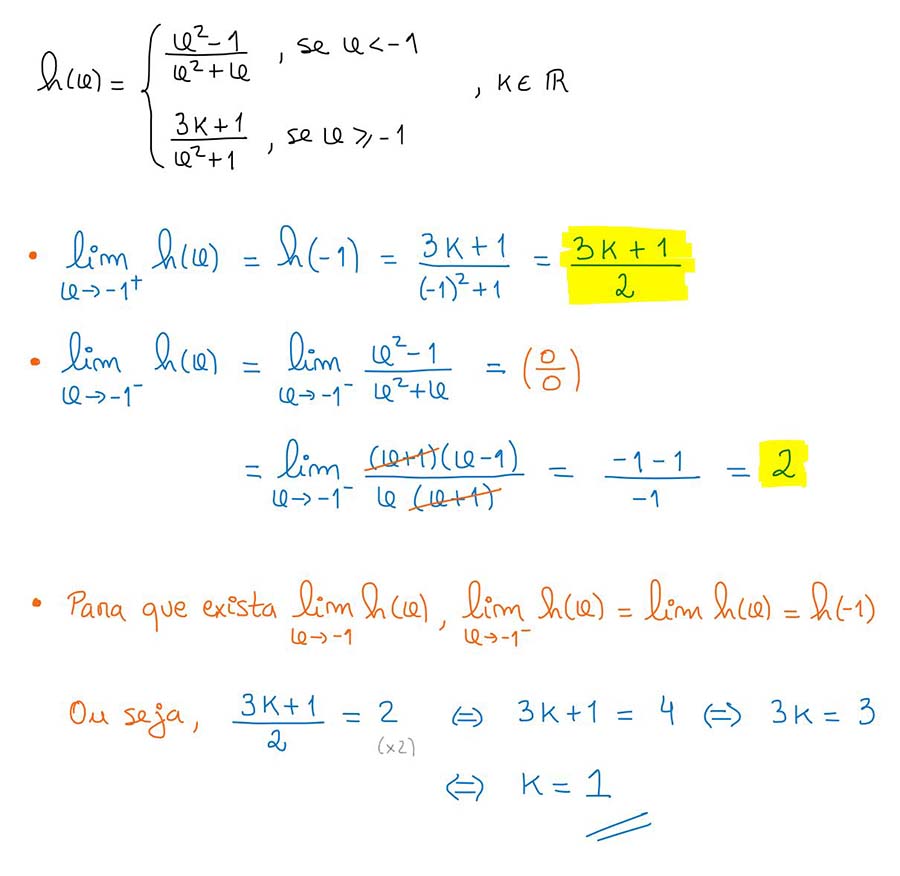 h(x) = { (x² - 1)/(x² + x) , se x < -1
(3K + 1)/(x² + 1) , se x ⩾ -1 , K ∈ ℝ
• lim x→-1⁺ h(x) = h(-1) = (3K + 1)/((-1)² + 1) = (3K + 1)/2
• lim x→-1⁻ h(x) = lim x→-1⁻ (x² - 1)/(x² + x) = (0/0)
= lim x→-1⁻ (x+1)(x-1)/(x (x+1)) = (-1 - 1)/(-1) = 2
• Para que exista lim x→-1 h(x), lim x→-1⁻ h(x) = lim h(x) = h(-1)
Ou seja, (3K + 1)/2 = 2 (x2) ⇔ 3K + 1 = 4 ⇔ 3K = 3
⇔ K = 1